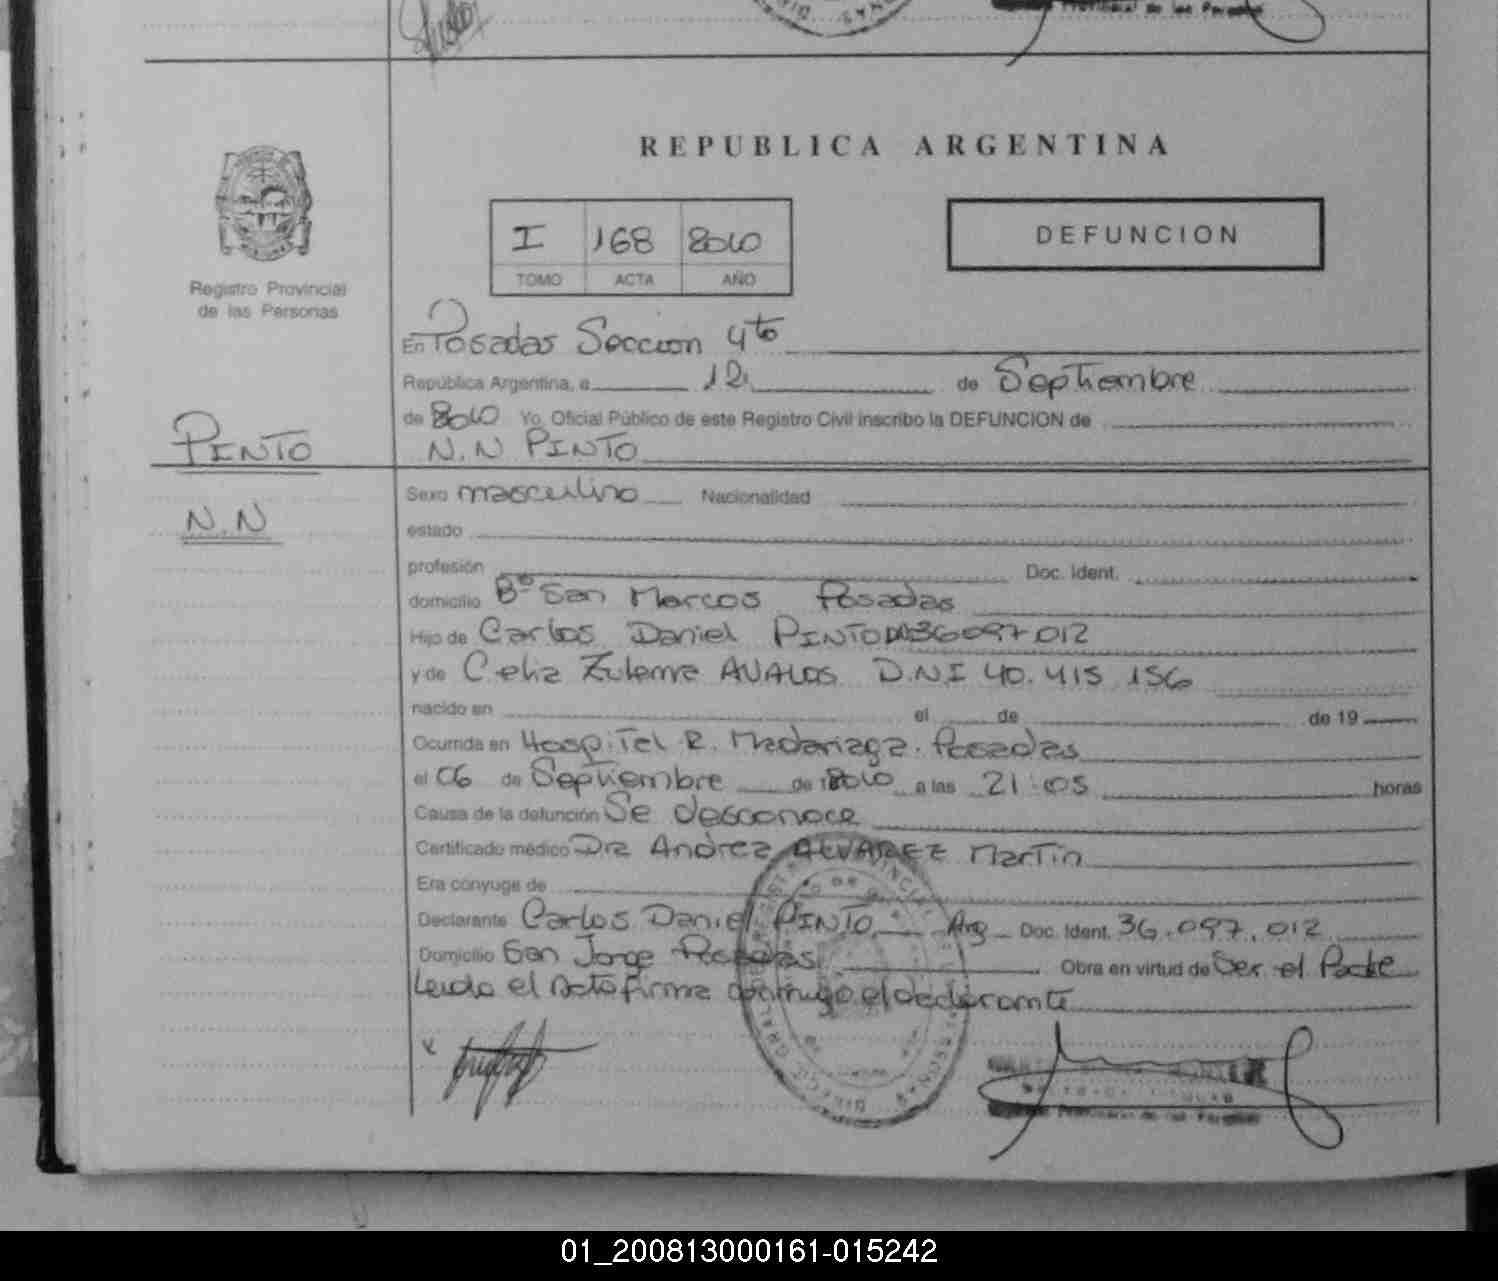 REPUBLICA ARGENTINA
I 168 2010
TOMO ACTA AÑO
DEFUNCION
Registro Provincial
de las Personas
En Posadas Seccion 4to
República Argentina, a 12 de Septiembre
de 2010 Yo, Oficial Público de este Registro Civil inscribo la DEFUNCION de
PINTO
N.N PINTO
N.N
Sexo masculino Nacionalidad
estado
profesión Doc. Ident.
domicilio Bº San Marcos Posadas
Hijo de Carlos Daniel PINTO DNI 36097012
y de Celia Zulema AVALOS D.N.I 40.415.156
nacido en el de de 19
Ocurrida en Hospital R. Madariaga. Posadas
el 06 de Septiembre de 2010 a las 21:05 horas
Causa de la defunción Se desconoce
Certificado médico Dra Andrea ALVAREZ Martin
Era cónyuge de
Declarante Carlos Daniel PINTO Arg Doc. Ident. 36.097.012
Domicilio San Jorge Posadas Obra en virtud de Ser el Padre
Leida el Acta firma conmigo el declarante
x
Provincial de las Personas
01_200813000161-015242